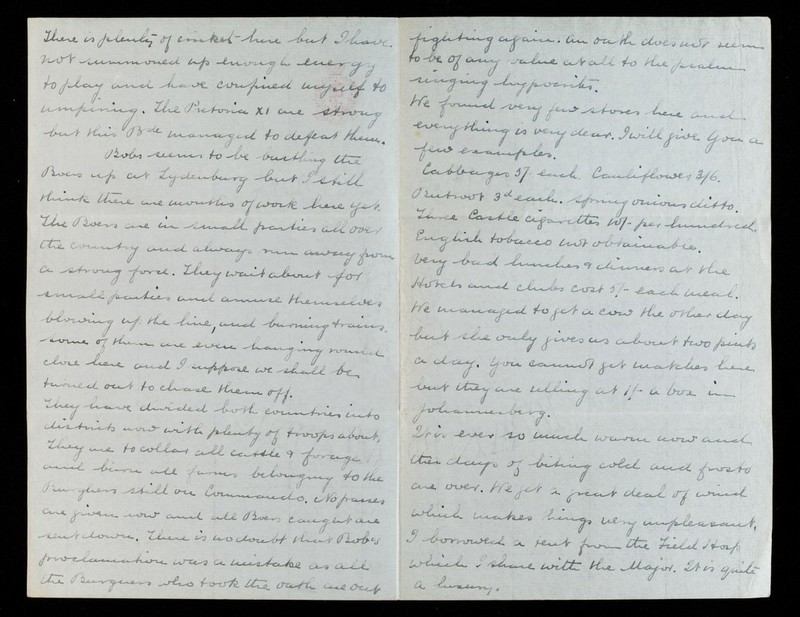 There is plenty of cricket here but I have
not summoned up enough energy
to play and have confined myself to
umpiring. The Pretoria XI are strong
but this Bde managed to defeat them.
Bobs seems to be bustling the
Boers up at Lydenburg but I still
think there are months of work here yet.
The Boers are in small parties all over
the country and always run away from
a strong force. They wait about for
small parties and amuse themselves
blowing up the line, and burning trains.
Some of them are even hanging round
close here and I suppose we shall be
turned out to chase them off.
They have divided both countries into
districts now with plenty of troops about.
They are to collar all cattle & forage
and burn all farms belonging to the
Burghers still on Commando. No passes
are given now and all Boers caught are
sent down. There is no doubt that Bobs'
proclamation was a mistake as all
the Burghers who took the oath are out
fighting again. An oath does not seem
to be of any value at all to the psalm
singing hypocrites.
We found very few stores here and
everything is very dear. I will give you a
few examples.
Cabbages 5/ each. Cauliflower 3/6.
Beetroot 3d each. Spring onions ditto.
Three Castle cigarettes 10/- per hundred.
English tobacco not obtainable.
Very bad lunches & dinners at the
Hotels and clubs cost 5/- each meal.
We managed to get a cow the other day
but she only gives us about two pints
a day. You cannot get matches here
but they are selling at 1/- a box in
Johannesberg.
It is ever so much warm now and
the days of biting cold and frosts
are over. We get a great deal of wind
which makes things very unpleasant.
I borrowed a tent from the Field Hosp
which I share with the Major. It is quite
a luxury.